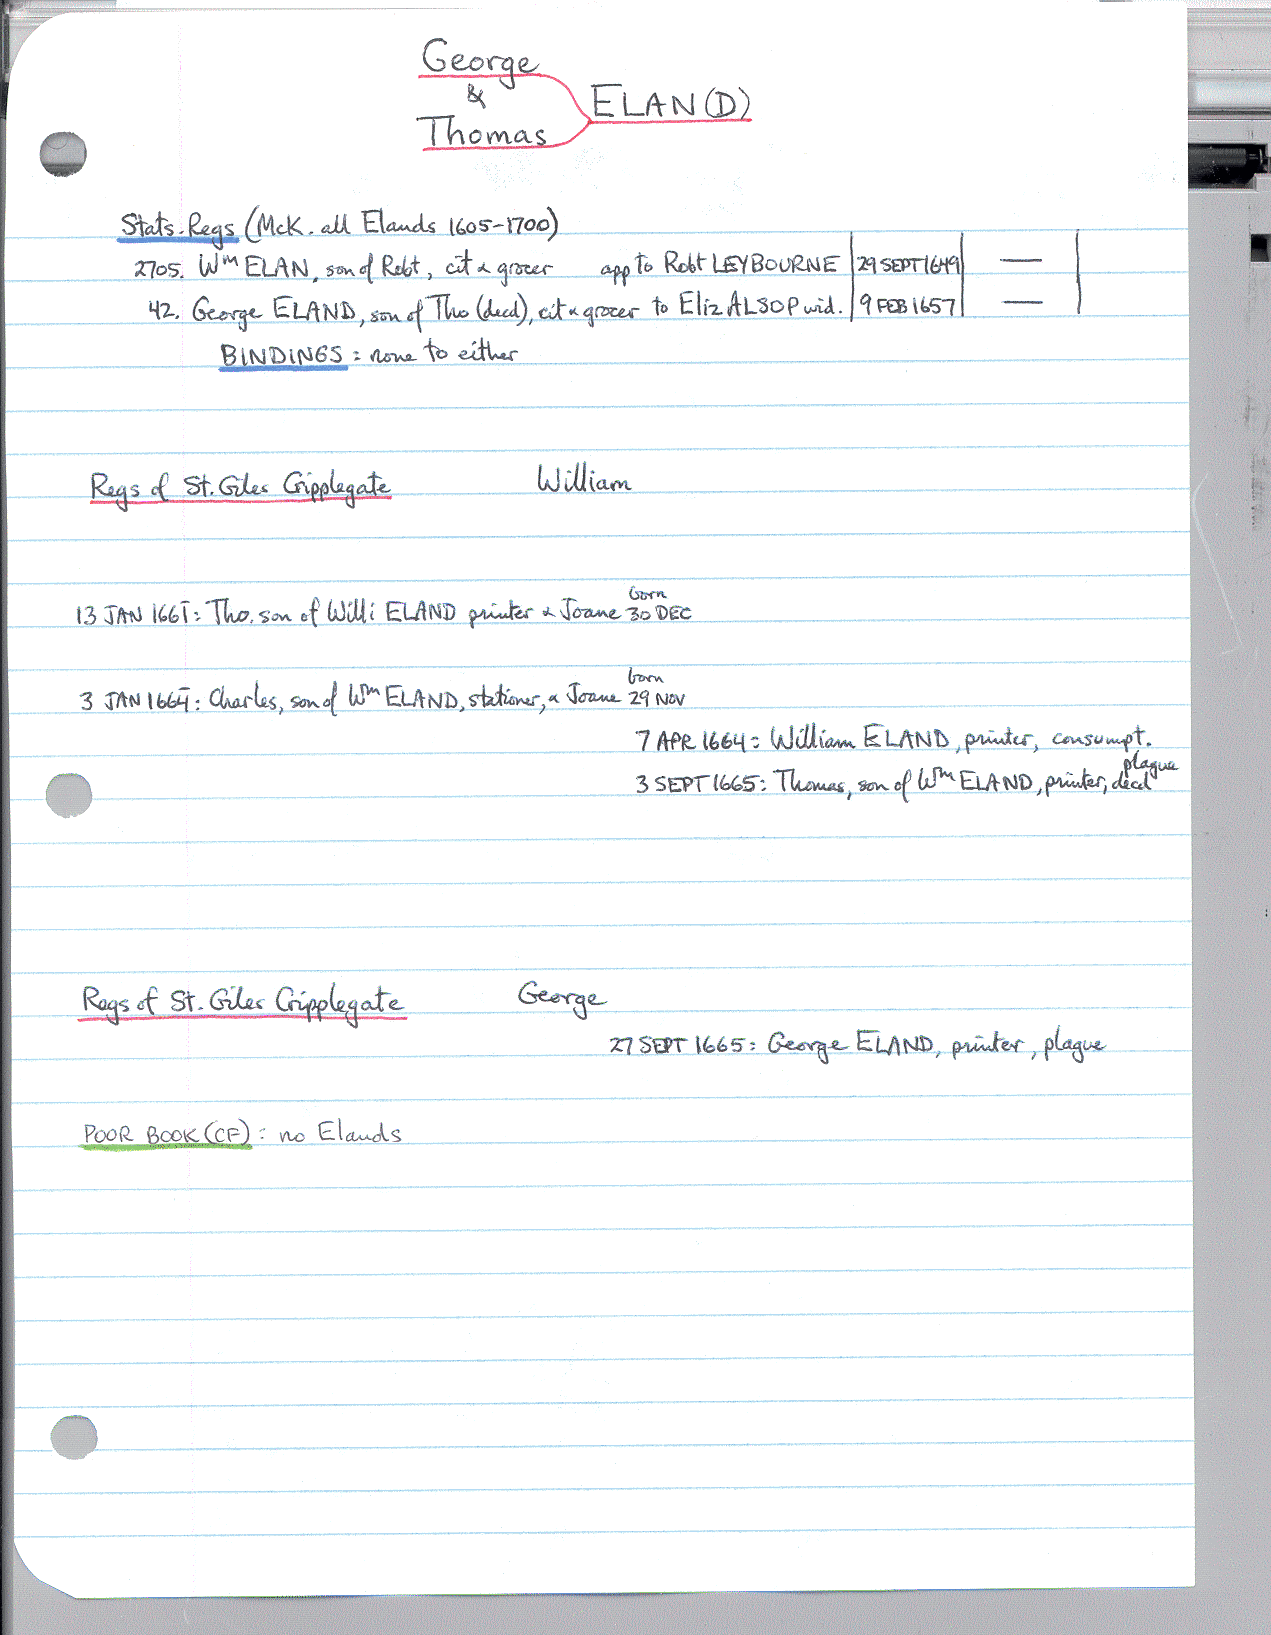 George
&
Thomas
ELAN(D)
Stats. Regs (McK. all Elands 1605-1700)
2705. Wm ELAN, son of Robt, cit & grocer app to Robt LEYBOURNE 29 SEPT 1649 —
42. George ELAND, son of Tho (decd), cit & grocer to Eliz ALSOP wid. 9 FEB 1657 —
BINDINGS: none to either
Regs of St. Giles Cripplegate William
born
13 JAN 1661: Tho. son of Willi ELAND printer & Joane 30 DEC
born
3 JAN 1664: Charles, son of Wm ELAND, stationer, & Joane 29 NOV
7 APR 1664: William ELAND, printer, consumpt.
plague
3 SEPT 1665: Thomas, son of Wm ELAND, printer, decd
Regs of St. Giles Cripplegate George
27 SEPT 1665: George ELAND, printer, plague
POOR BOOK (CF): no Elands